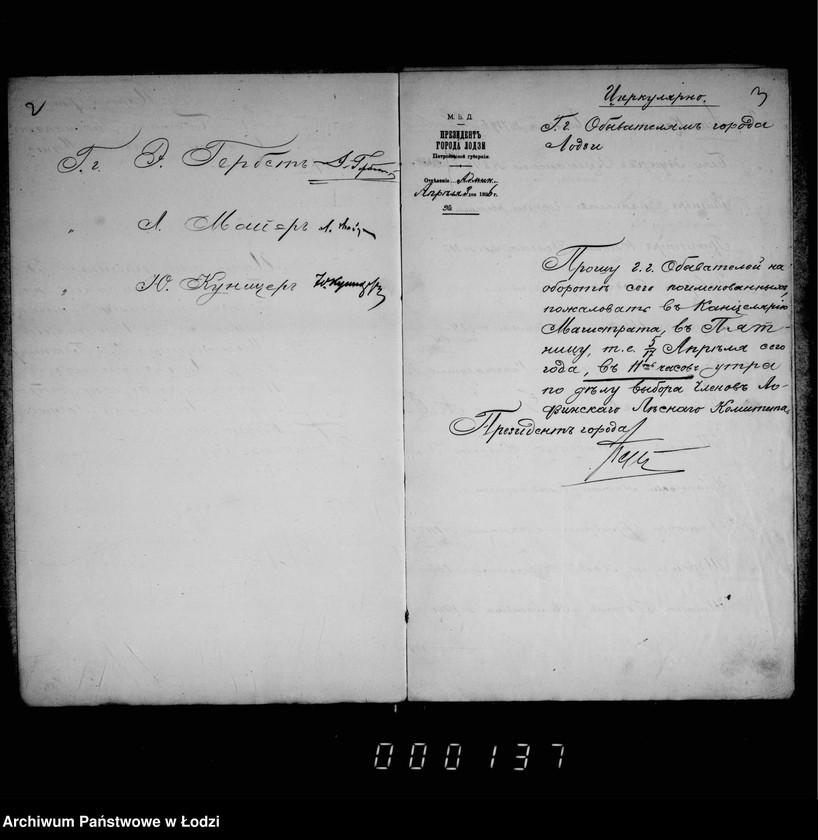 2
Г.г. Э. Гербстъ
" Л. Майеръ
" Ю. Куницеръ Ю. Куницеръ
3
Циркулярно.
М. В. Д.
ПРЕЗИДЕНТЪ
ГОРОДА ЛОДЗИ
Петроковской губерніи.
Отдѣленіе Админ.
Апрѣля 3 дня 1896 г.
№
Г.г. Обывателямъ города
Лодзи
Прошу г.г. Обывателей на
оборотѣ сего поименованныхъ
пожаловать въ Канцелярію
Магистрата, въ Пят-
ницу, т.е. 5/17 Апрѣля сего
года, въ 11ть часовъ утра
по дѣлу выбора Членовъ Ло-
дзинскаго Лѣснаго Комитета.
Президентъ города
000137
Archiwum Państwowe w Łodzi